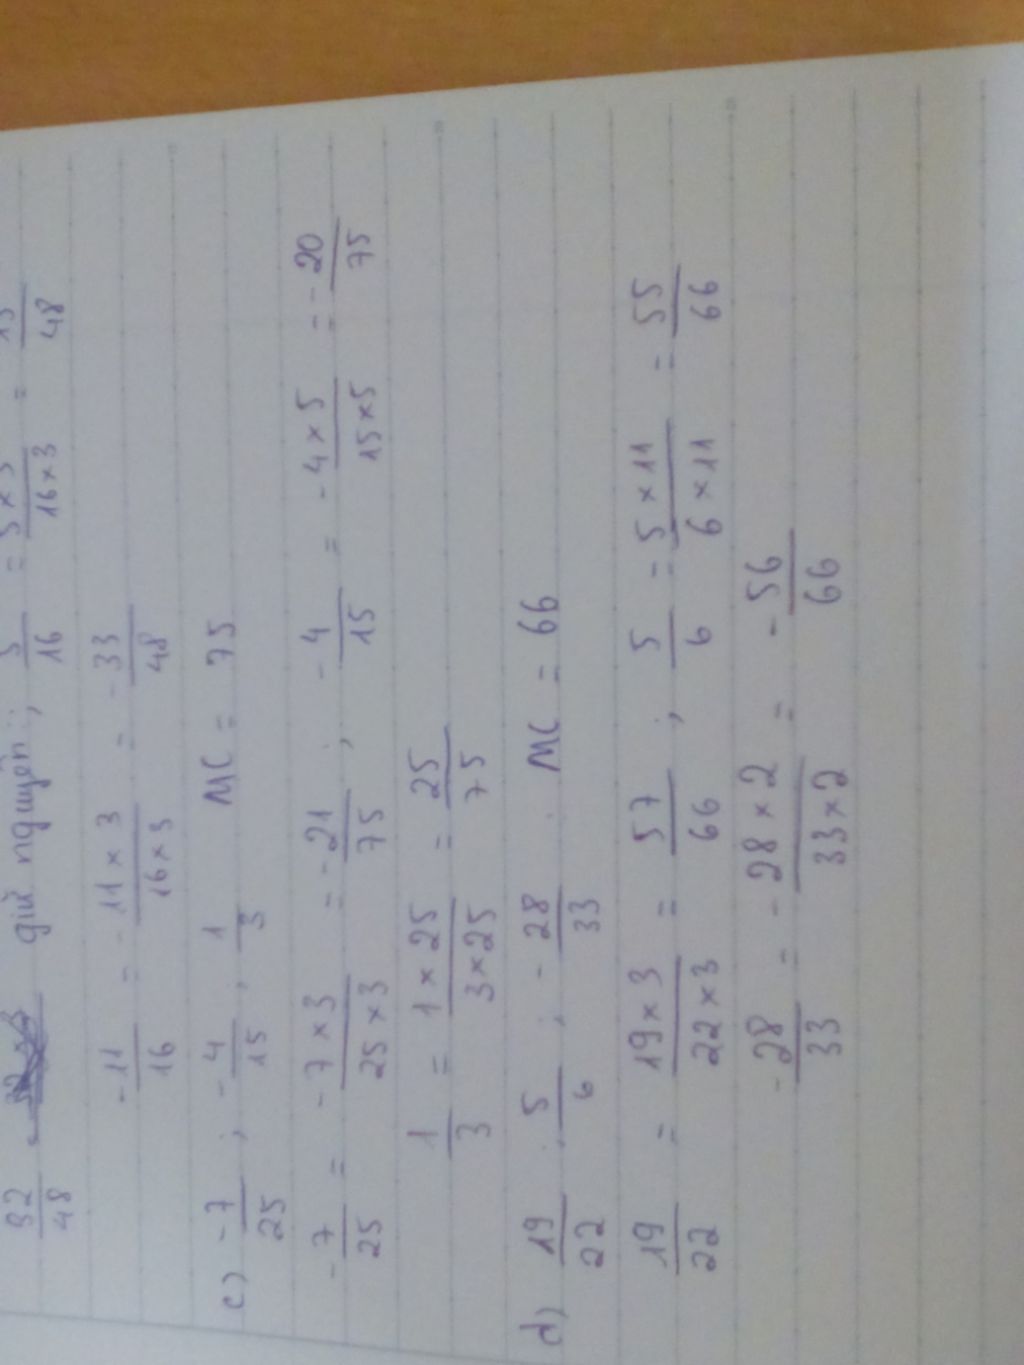 32/48 giữ nguyên ; 5/16 = 5 x 3/16 x 3 = 15/48
-11/16 = -11 x 3/16 x 3 = -33/48
c) -7/25 ; -4/15 ; 1/3 MC = 75
-7/25 = -7 x 3/25 x 3 = -21/75 ; -4/15 = -4 x 5/15 x 5 = -20/75
1/3 = 1 x 25/3 x 25 = 25/75
d) 19/22 ; 5/6 ; -28/33 . MC = 66
19/22 = 19 x 3/22 x 3 = 57/66 ; 5/6 = 5 x 11/6 x 11 = 55/66
-28/33 = -28 x 2/33 x 2 = -56/66